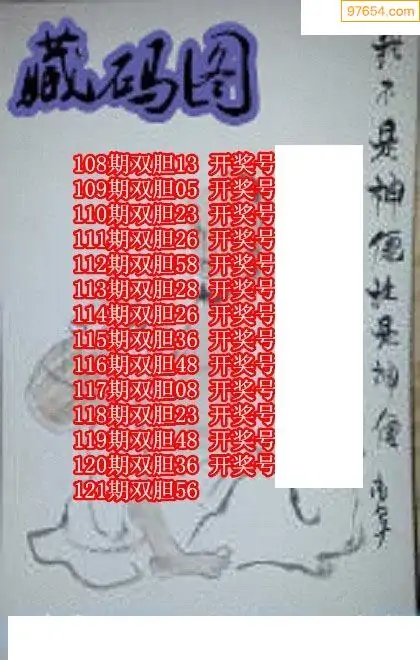 97654.com
藏码图
108期双胆13 开奖号
109期双胆05 开奖号
110期双胆23 开奖号
111期双胆26 开奖号
112期双胆58 开奖号
113期双胆28 开奖号
114期双胆26 开奖号
115期双胆36 开奖号
116期双胆48 开奖号
117期双胆08 开奖号
118期双胆23 开奖号
119期双胆48 开奖号
120期双胆36 开奖号
121期双胆56
我不是神仙胜是神仙